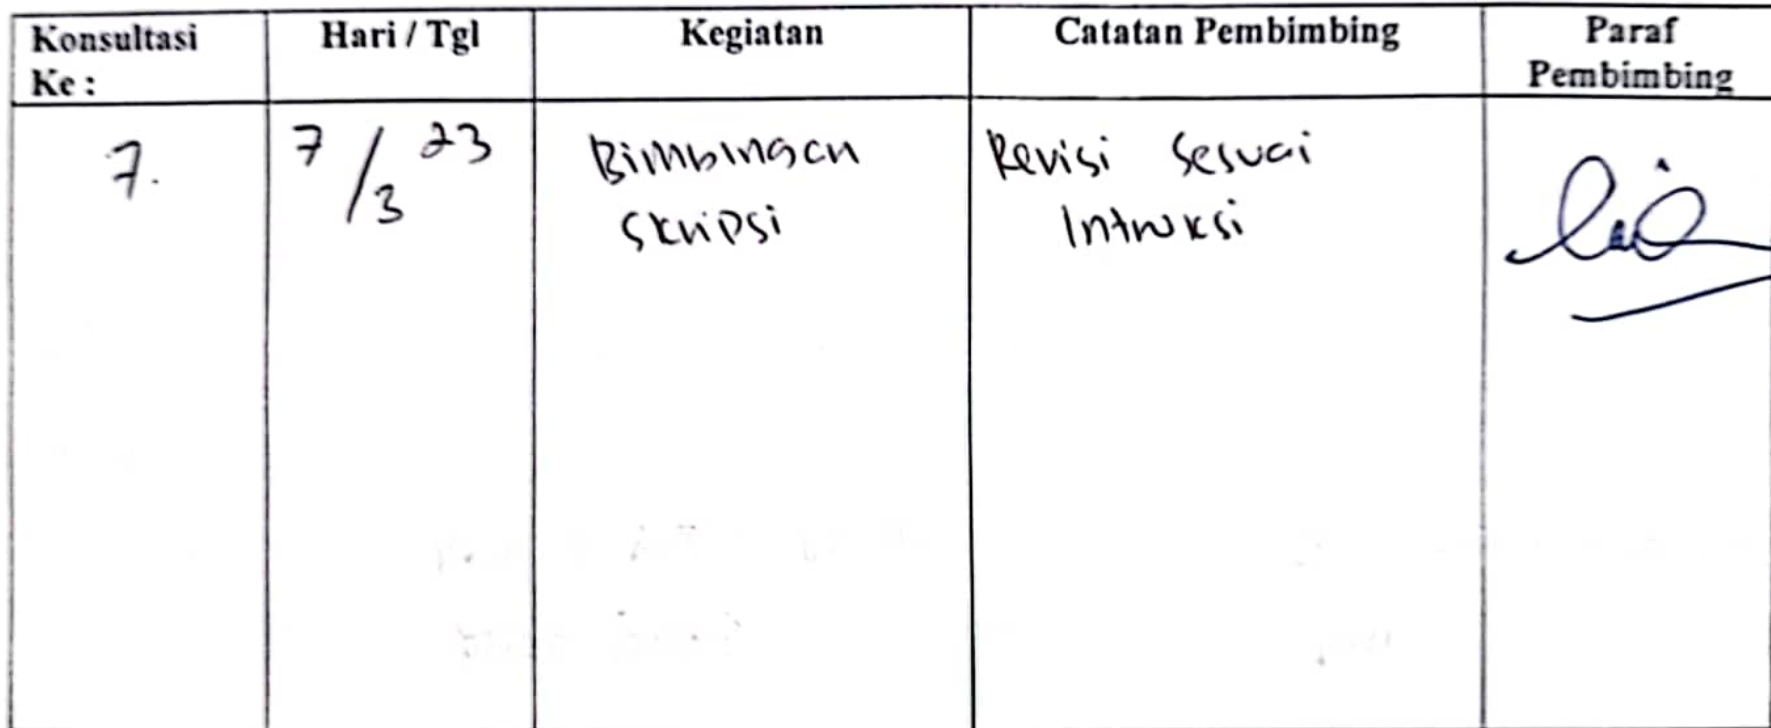 Konsultasi Ke :
Hari / Tgl
Kegiatan
Catatan Pembimbing
Paraf Pembimbing
7.
7/3 23
Bimbingan
Skripsi
Revisi Sesuai
Intruksi